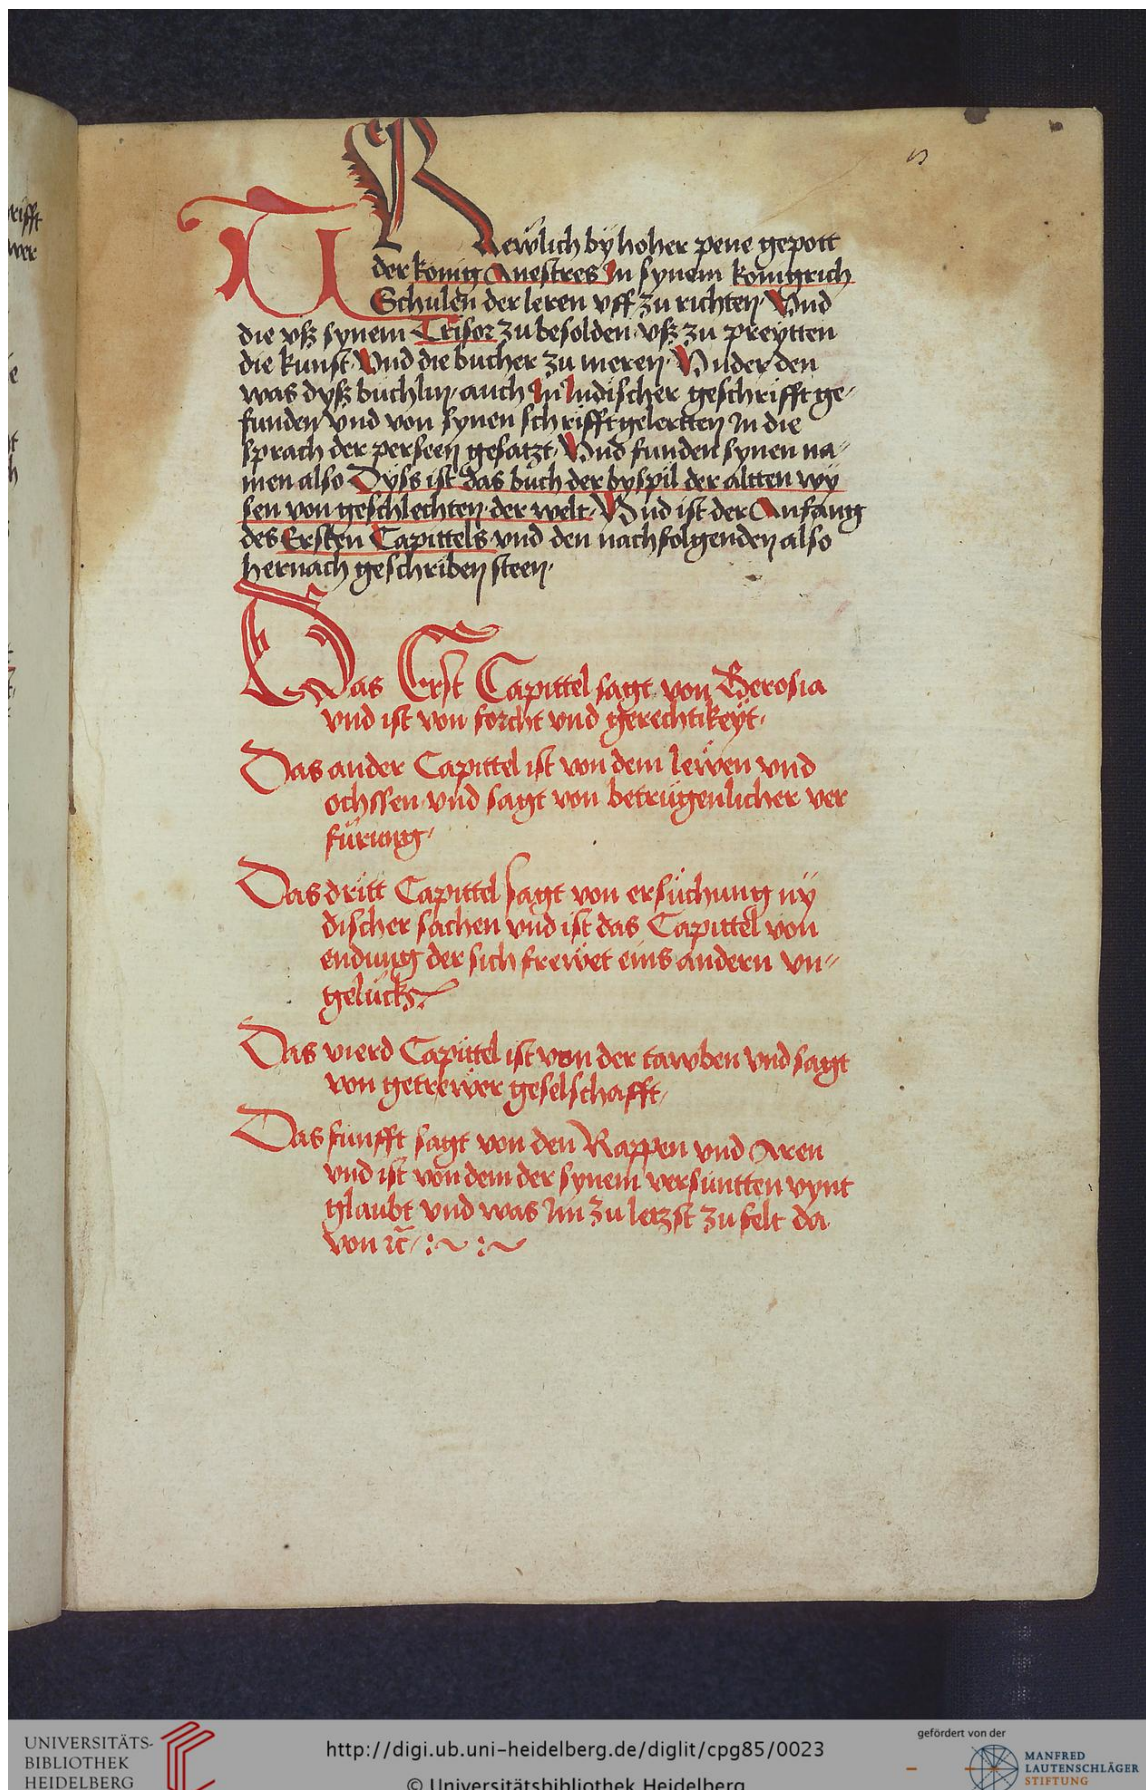 13
TRewlich by hoher pene gepott
der konig Anestres In synem konigrich
Schulen der leren vff zu richten. Vnd
die vß synem Trisor zu besolden. vß zu preytten
die kunst. Vnd die bucher zu meren. Vnder den
was dyß buchlin. auch In Indischer geschrifft ge-
funden vnd von synen schrifftgelertten In die
sprach der perseen gesatzt. Vnd funden synen na-
men also Dyss ist das buch der byspil der altten wy
sen von geschlechten. der welt. Vnd ist der Anfang
des Ersten Capittels vnd den nachfolgenden also
hernach geschriben steen.
Das Erst Capittel sagt von Berosia
vnd ist von forcht vnd gerechtikeyt.
Das ander Capittel ist von dem lewen vnd
ochssen. vnd sagt von betrugenlicher ver
furung.
Das dritt Capittel sagt von ersuchung ny
discher sachen vnd ist das Capittel von
endung der sich frewet eins andern vn-
gelucks.
Das vierd Capittel ist von der tawben vnd sagt
von getrewer geselschafft.
Das funfft sagt von den Rappen vnd Aren
vnd ist von dem der synem versuntten vynt
glaubt vnd was Im zu letzst zu felt da
von rc.
rifft
wer
UNIVERSITÄTS-
BIBLIOTHEK
HEIDELBERG
http://digi.ub.uni-heidelberg.de/diglit/cpg85/0023
© Universitätsbibliothek Heidelberg
gefördert von der
MANFRED
LAUTENSCHLÄGER
STIFTUNG